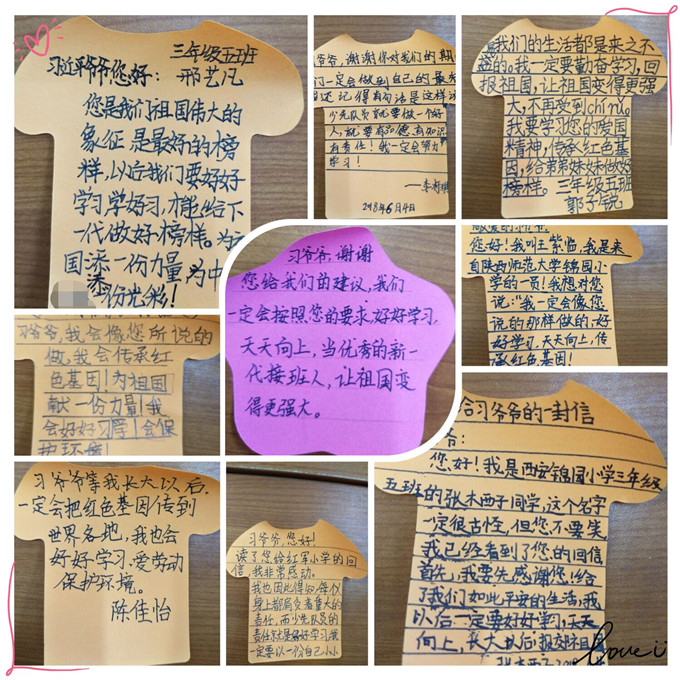 三年级五班
习近平爷爷您好：邢艺凡
您是我们祖国伟大的
象征是最好的榜
样，以后我们要好好
学习学好习，才能给下
一代做好榜样。为
国添一份力量为中
添一份光彩！
爷爷，谢谢你对我们的期
们一定会做到自己的最
还记得有句话是这样
少先队员就要做一个好
人，就要有品德有知识
有责任！我一定会努力
学习！
2018年6月4日
我们的生活都是来之不
的。我一定要勤奋学习，回
报祖国，让祖国变得更强
大，不再受到
我要学习您的爱国
精神，传承红色基
因，给弟弟妹妹做好
榜样。三年级五班
郭子锐
习爷爷，谢谢
您给我们的建议，我们
一定会按照您的要求，好好学习，
天天向上，当优秀的新一
代接班人，让祖国变
得更强大。
您好！我叫王紫临，我是来
自陕西师范大学锦园小
学的一员！我想对您
说："我一定会像您
说的那样做的-好
好学习，天天向上，传
承红色基因！
习爷爷，我会像您所说的
做，我会传承红
色基因！为祖国
献一份力量！我
会好好习学！会保
护环境！
给习爷爷的一封信
爷：
您好！我是西安锦园小学三年级
五班的张木西子同学，这个名字
一定很古怪，但您不要笑
我已经看到了您的回信
首先，我要先感谢您！给
了我们如此平安的生活，我
以后一定要好好学习，天天
向上，长大以后，报效祖国
习爷爷等我长大以后，
一定会把红色基因传到
世界各地，我也会
好好学习、爱劳动
保护环境。
陈佳怡
习爷爷，您好！
读了您给红军小学的回
信，我非常感动。
我也因此得知每个
身上都肩负着重大的
责任，而少先队员的
责任就是好好学习，我
一定要以一份自己小小
Love